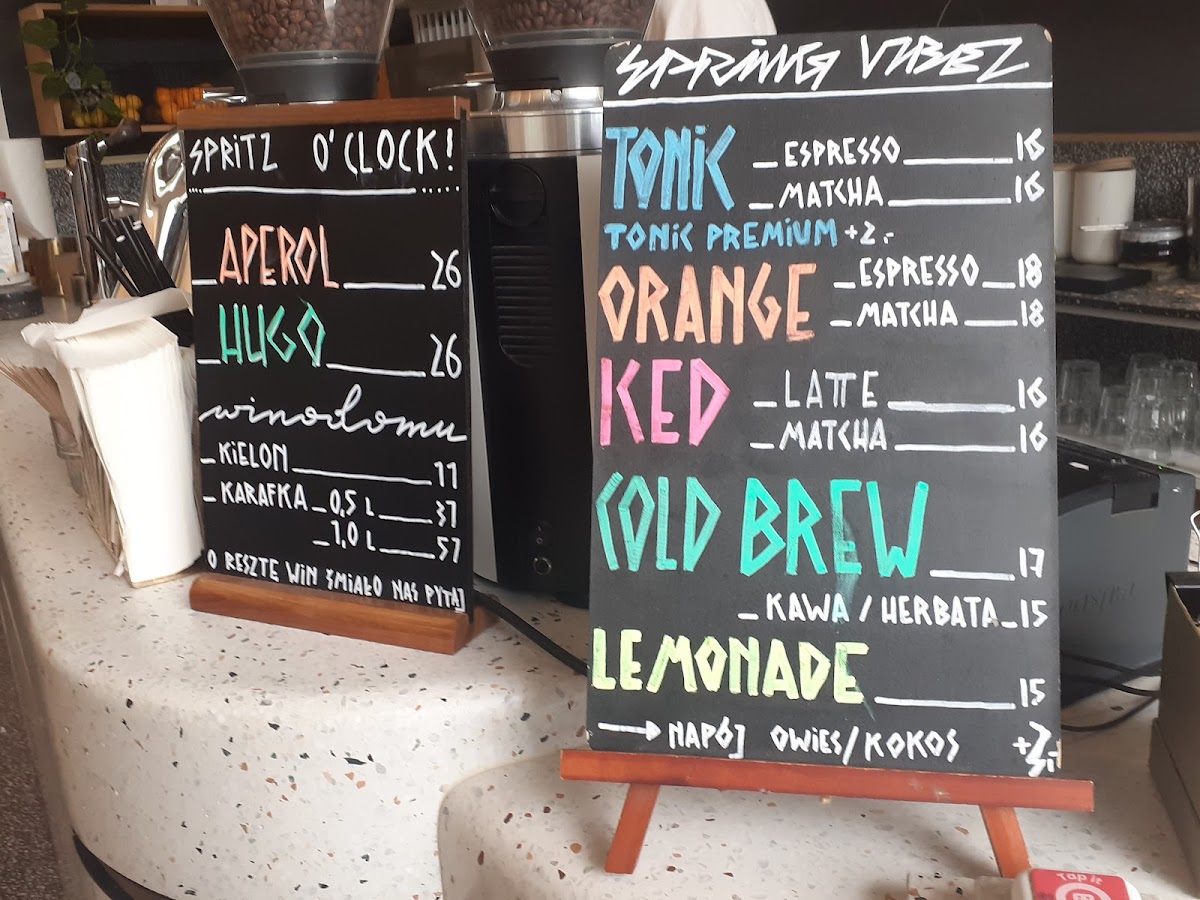 SPRITZ O'CLOCK!
APEROL 26
HUGO 26
winodomu
KIELON 11
KARAFKA 0,5 L 37
1,0 L 57
O RESZTĘ WIN ŚMIAŁO NAS PYTAJ
SPRING VIBEZ
TONIC ESPRESSO 16
MATCHA 16
TONIC PREMIUM +2.-
ORANGE ESPRESSO 18
MATCHA 18
ICED LATTE 16
MATCHA 16
COLD BREW 17
KAWA / HERBATA 15
LEMONADE 15
→ NAPÓJ OWIES/KOKOS
Tap it